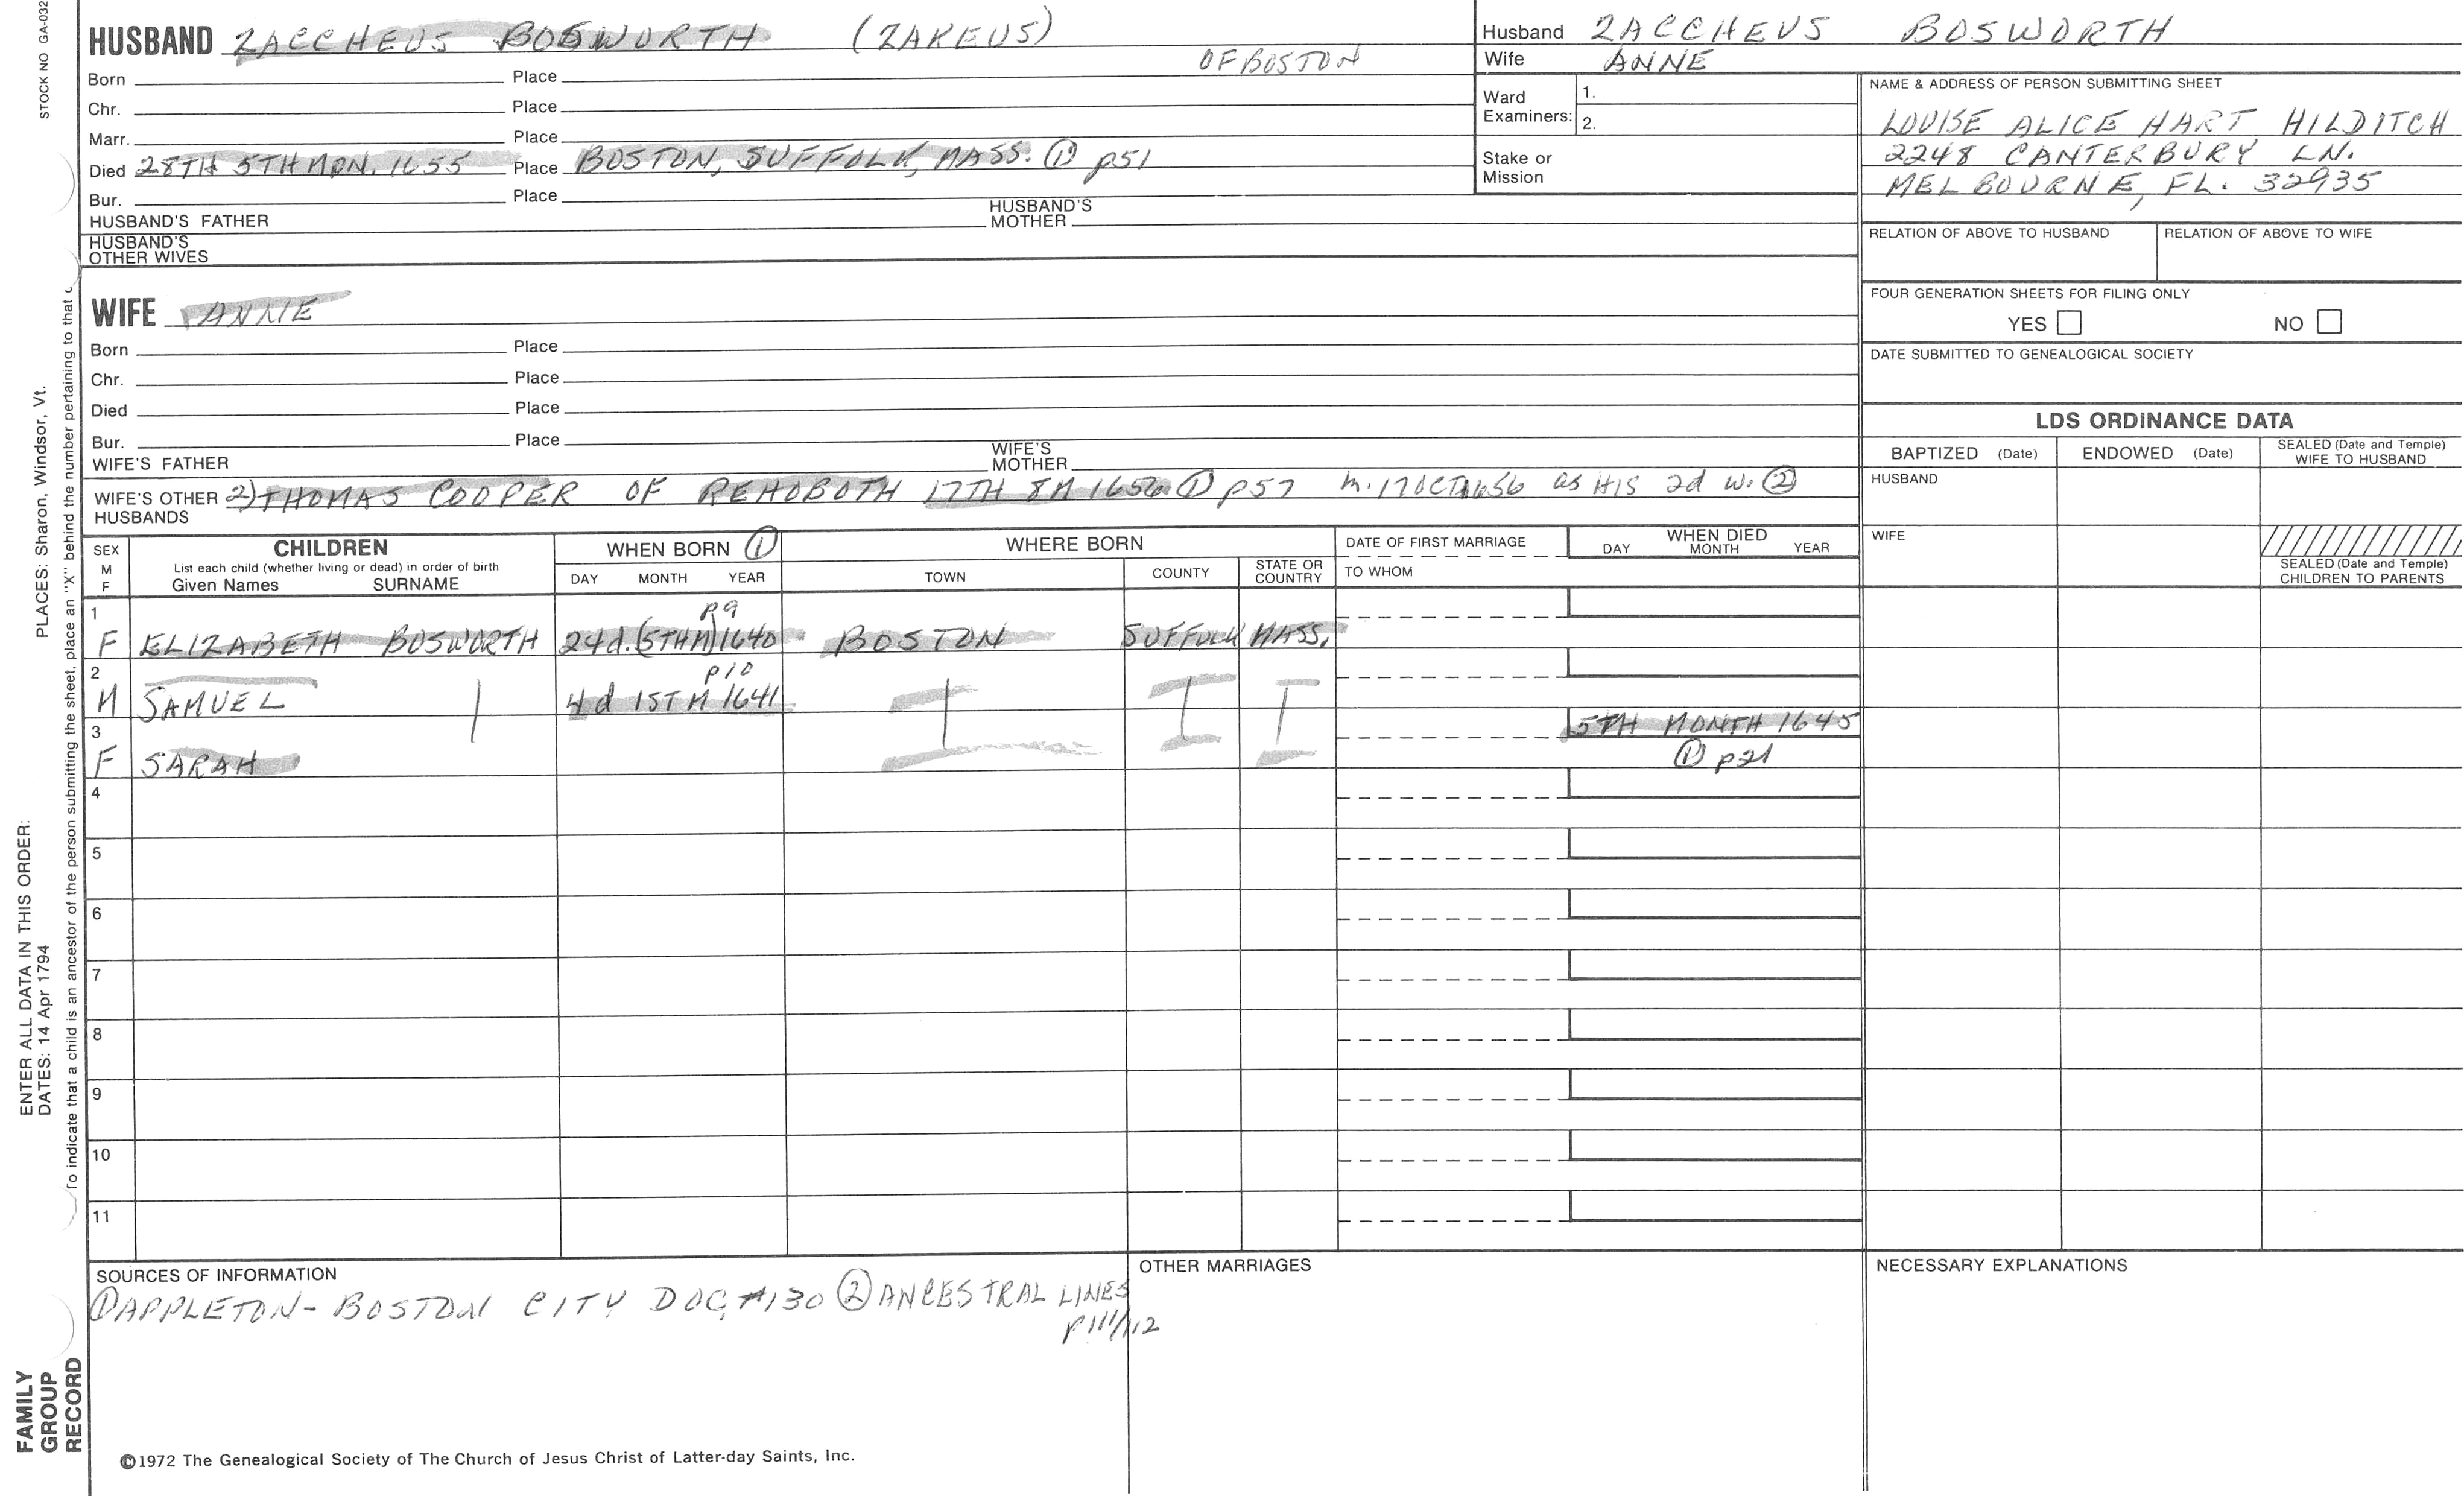 HUSBAND ZACCHEUS BOSWORTH (ZAKEUS)
OF BOSTON
Born Place
Chr. Place
Marr. Place
Died 28TH 5TH MON. 1655 Place BOSTON, SUFFOLK, MASS. ① p51
Bur. Place
HUSBAND'S FATHER HUSBAND'S MOTHER
HUSBAND'S OTHER WIVES
Husband ZACCHEUS BOSWORTH
Wife ANNE
Ward Examiners: 1.
2.
Stake or Mission
NAME & ADDRESS OF PERSON SUBMITTING SHEET
LOUISE ALICE HART HILDITCH
2248 CANTERBURY LN.
MELBOURNE, FL. 32935
RELATION OF ABOVE TO HUSBAND RELATION OF ABOVE TO WIFE
FOUR GENERATION SHEETS FOR FILING ONLY
YES NO
DATE SUBMITTED TO GENEALOGICAL SOCIETY
WIFE ANNIE
Born Place
Chr. Place
Died Place
Bur. Place
WIFE'S FATHER WIFE'S MOTHER
WIFE'S OTHER HUSBANDS 2) THOMAS COOPER OF REHOBOTH 17TH 8M 1656 ① p57 m. 17 OCT 1656 as HIS 2d w. ②
LDS ORDINANCE DATA
BAPTIZED (Date) ENDOWED (Date) SEALED (Date and Temple) WIFE TO HUSBAND
HUSBAND
WIFE
SEALED (Date and Temple) CHILDREN TO PARENTS
SEX M F
CHILDREN
List each child (whether living or dead) in order of birth
Given Names SURNAME
WHEN BORN ①
DAY MONTH YEAR
WHERE BORN
TOWN COUNTY STATE OR COUNTRY
DATE OF FIRST MARRIAGE
TO WHOM
WHEN DIED
DAY MONTH YEAR
1 p9
F ELIZABETH BOSWORTH 24d. (5TH M) 1640 BOSTON SUFFOLK MASS.
2 p10
M SAMUEL 4d 1ST M 1641
3 5TH MONTH 1645
F SARAH ① p21
4
5
6
7
8
9
10
11
SOURCES OF INFORMATION
① APPLETON- BOSTON CITY DOC #130 ② ANCESTRAL LINES
p111/112
OTHER MARRIAGES
NECESSARY EXPLANATIONS
©1972 The Genealogical Society of The Church of Jesus Christ of Latter-day Saints, Inc.
STOCK NO GA-032
PLACES: Sharon, Windsor, Vt.
ENTER ALL DATA IN THIS ORDER:
DATES: 14 Apr 1794
To indicate that a child is an ancestor of the person submitting the sheet, place an "X" behind the number pertaining to that
FAMILY
GROUP
RECORD